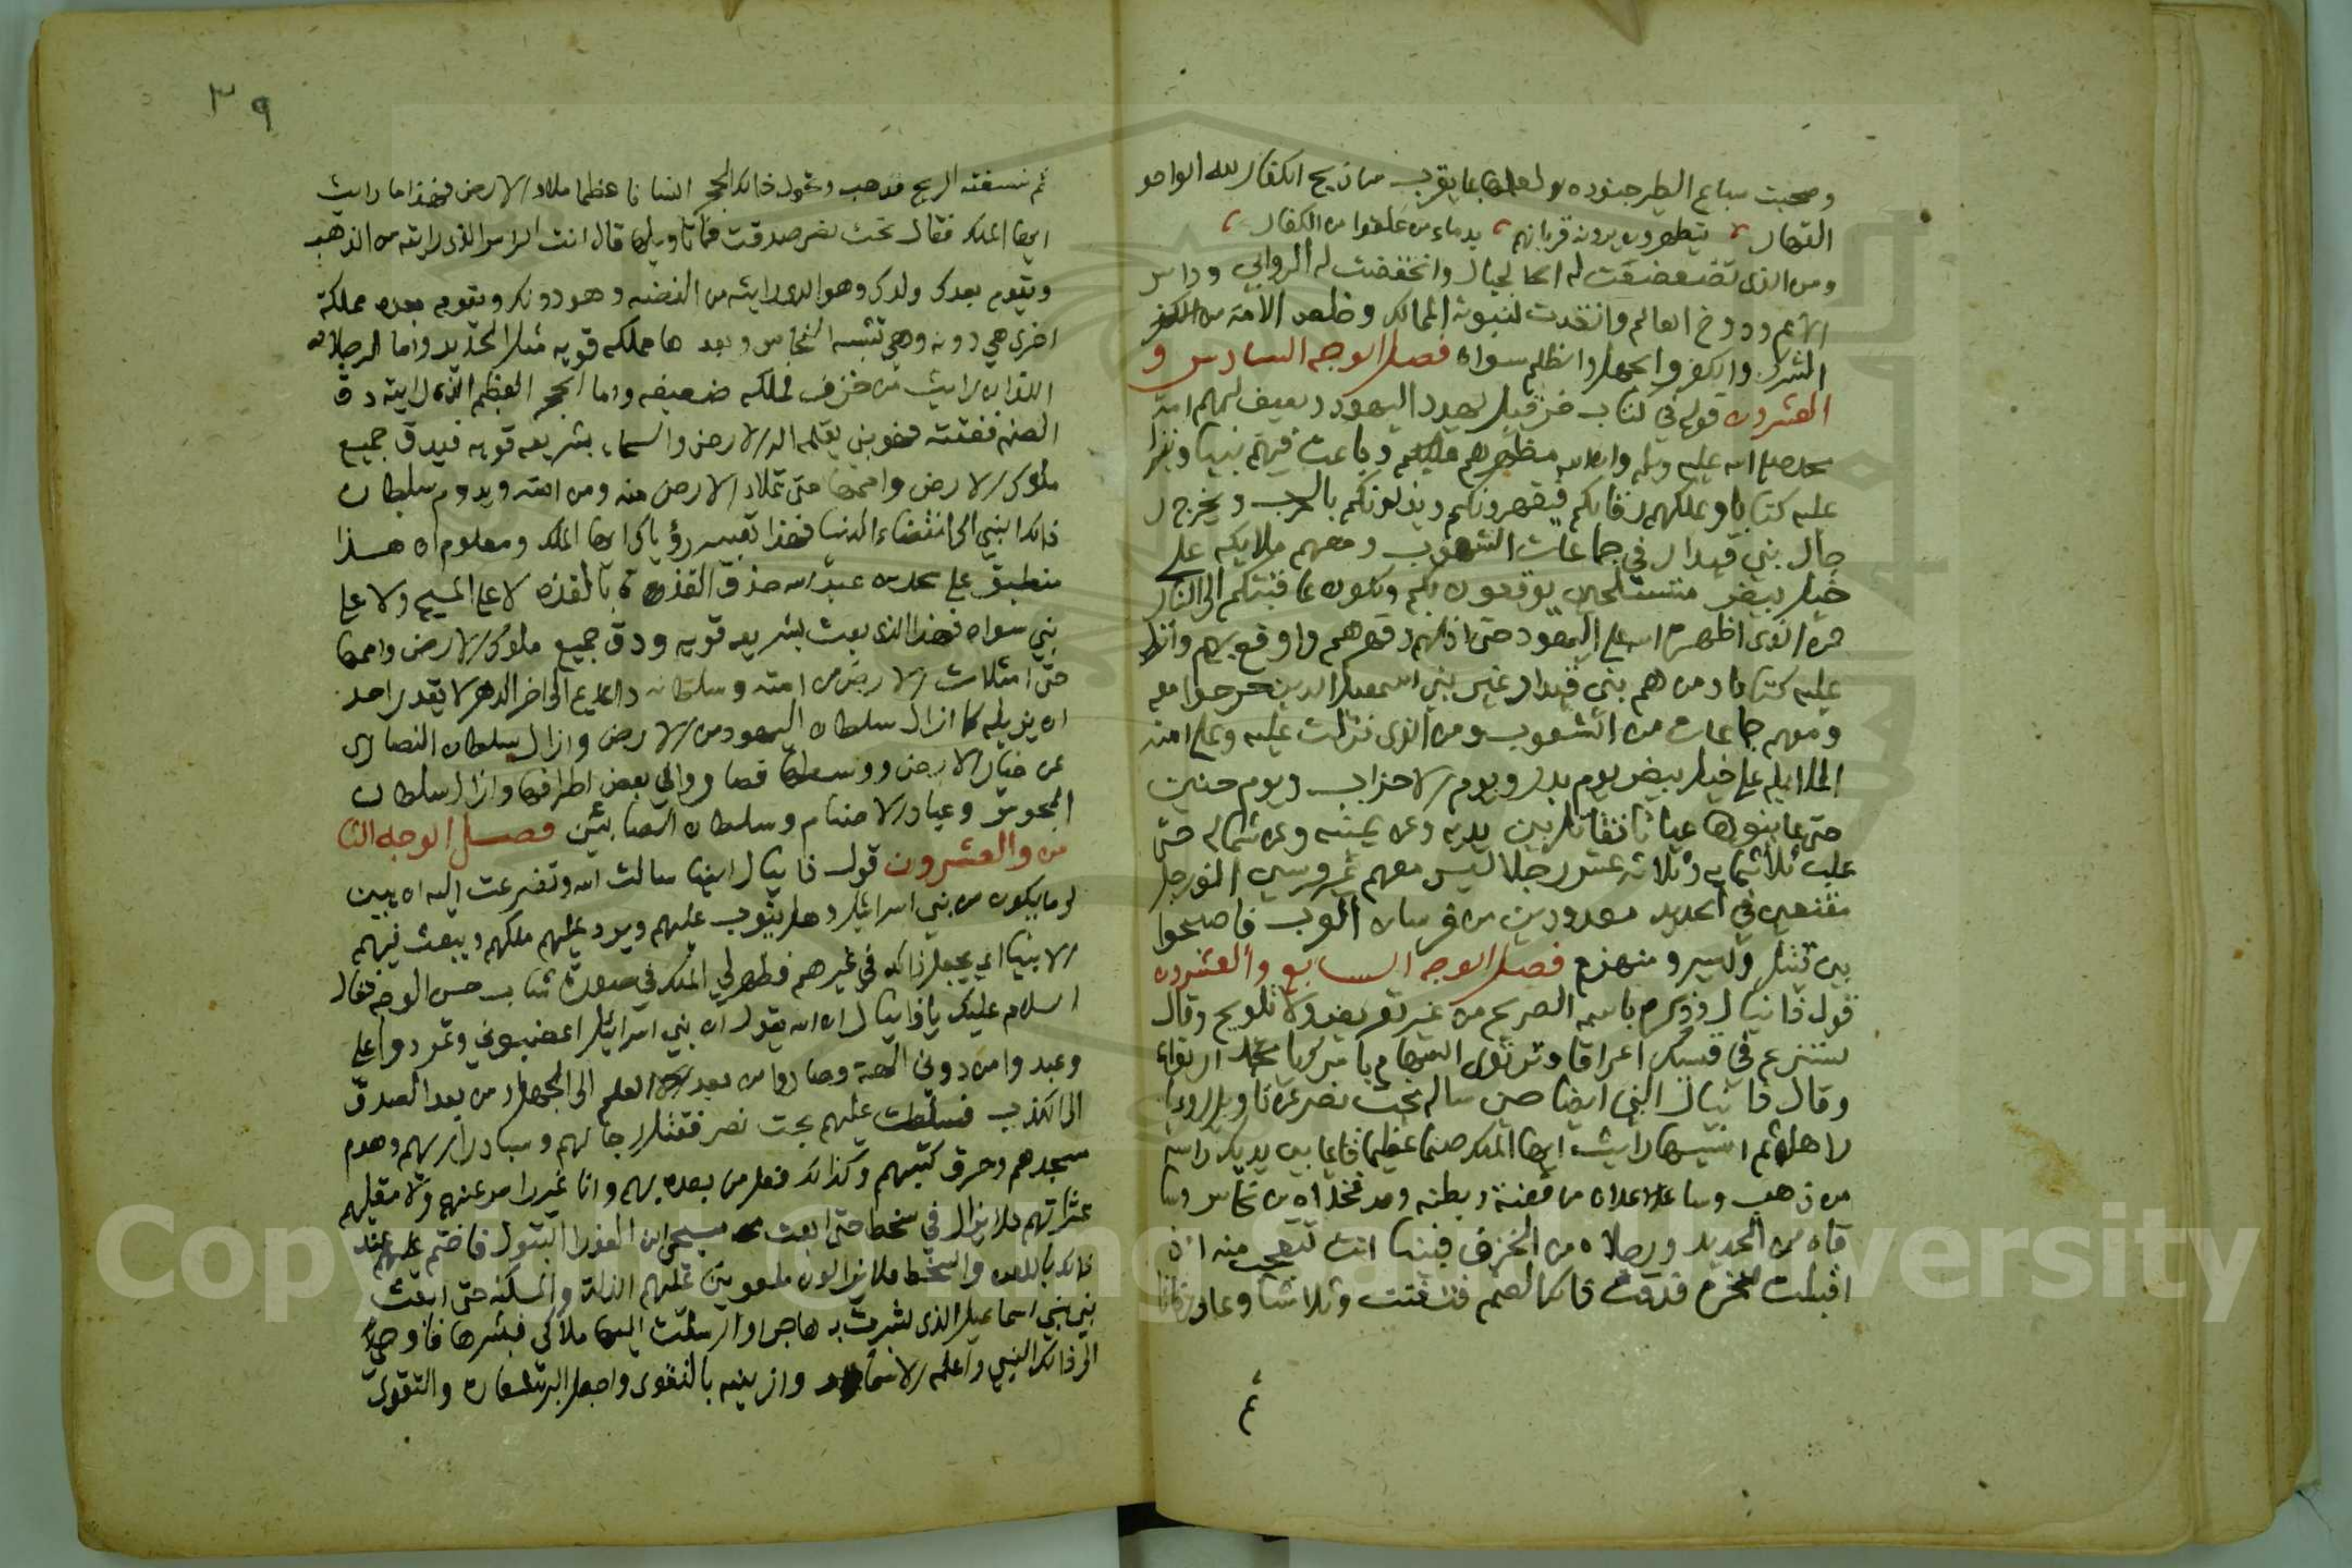 وصحبت سباع الطير جنوده ولعلها بما يقرب من ذبح الكفار لله الواحد
القهار يتطهرون يرونه قربانهم بدماء من علقوا من الكفار
ومن الذي تضعضعت له الجبال وانخفضت له الروابي وداس
الامم ودوخ العالم وانتقدت لنبوته الممالك وخلص الامة من الكفر
الشرك والكفر والجهل والظلم سواه فصل الوجه السادس و
العشرون قوله في كتاب حزقيل يهدد اليهود ويصف لهم امة
محمد صلى الله عليه وسلم وان الله مظهرهم عليكم وباعث فيهم نبيا وينزل
عليه كتابا ويملكهم رقابكم فيقهرونكم ويذلونكم بالحرب ويخرج ر
جال بني قيدار في جماعات الشعوب ومعهم ملايكة على
خيل بيض متسلحين يوقعون بكم وتكون عاقبتكم الى النار
من الذي اظهره الله على اليهود حتى اذلهم وقهرهم واوقع بهم وانزل
عليه كتابا ومن هم بني قيدار غير بني اسمعيل الذين خرجوا معه
ومعهم جماعات من الشعوب ومن الذي نزلت عليه وعلى امته
الملايكة على خيل بيض يوم بدر ويوم الاحزاب ويوم حنين
حتى عاينوها عيانا تقاتل بين يديه وعن يمينه وعن شماله حتى
غلب ثلاثماية وثلاثة عشر رجلا ليس معهم غير فرسين الف رجل
مقنعين في الحديد معدودين من فرسان العرب فاصبحوا
بين قتيل واسير ومنهزم فصل الوجه السابع والعشرون
قول دانيال وذكره باسمه الصريح من غير تعريض ولا تلويح وقال
ستنزع في قسيك اغراقا وترتوي السهام بامرك يا محمد ارتواء
وقال دانيال النبي ايضا حين ساله بخت نصر عن تاويل رويا
راها ثم انسيها رايت ايها الملك صنما عظيما قايما بين يديك راسه
من ذهب وساعداه من فضة وبطنه وفخذاه من نحاس وسا
قاه من الحديد ورجلاه من الخزف فبينا انت تتعجب منه اذ
اقبلت صخرة فدقت ذلك الصنم فتفتت وتلاشا وعاد رفاتا
ثم
٣٩
ثم نسفته الريح فذهب وتحول ذلك الحجر انسانا عظيما ملاء الارض فهذا ما رايت
ايها الملك فقال بخت نصر صدقت فما تاويلها قال انت الراس الذي رايته من الذهب
ويقوم بعدك ولدك وهو الذي رايته من الفضة وهو دونك ويقوم بعده مملكة
اخرى هي دونه وهي تشبه النحاس وبعدها مملكة قوية مثل الحديد واما الرجلان
اللذان رايت من خزف فملكه ضعيفه واما الحجر العظيم الذي رايته دق
الصنم ففتته فهو نبي يقيمه اله الارض والسماء بشريعه قويه فيدق جميع
ملوك الارض واممها حتى تملاء الارض منه ومن امته ويدوم سلطان
ذلك النبي الى انقضاء الدنيا فهذا تعبير رؤياك ايها الملك ومعلوم ان هذا
منطبق على محمد بن عبد الله حذو القذة بالقذة لا على المسيح ولا على
نبي سواه فهذا الذي بعث بشريعه قويه ودق جميع ملوك الارض واممها
حتى امتلات الارض من امته وسلطانه دايم الى اخر الدهر لا يقدر احد
ان يزيله كما ازال سلطان اليهود من الارض وازال سلطان النصارى
عن خيار الارض ووسطها فصار والي بعض اطرافها وازال سلطان
المجوس وعباد الاصنام وسلطان الصابئين فصل الوجه الثا
من والعشرون قول دانيال ايضا سالت الله وتضرعت اليه ان يبين
لي ما يكون من بني اسرائيل وهل يتوب عليهم ويرد عليهم ملكهم ويبعث فيهم
الانبياء او يجعل ذلك في غيرهم فظهر لي الملك في صورة شاب حسن الوجه فقال
السلام عليك يا دانيال ان الله يقول ان بني اسرائيل اغضبوني وتمردوا علي
وعبدوا من دوني الهة وصاروا من بعد العلم الى الجهل ومن بعد الصدق
الى الكذب فسلطت عليهم بخت نصر فقتل رجالهم وسبا ذراريهم وهدم
مسجدهم وحرق كتبهم وكذلك فعل من بعده بهم وانا غير راض عنهم ولا مقيلهم
عثراتهم فلا يزال في سخط حتى ابعث مسيحي ابن العذرا البتول فاختم عليهم عند
ذلك باللعن والسخط فلا يزالون ملعونين عليهم الذلة والمسكنة حتى ابعث
نبي بني اسماعيل الذي بشرت به هاجر وارسلت اليها ملاكي فبشرها فاوحي
الى ذلك النبي واعلمه الاسماء وازينه بالتقوى واجعل البر شعاره والتقوى